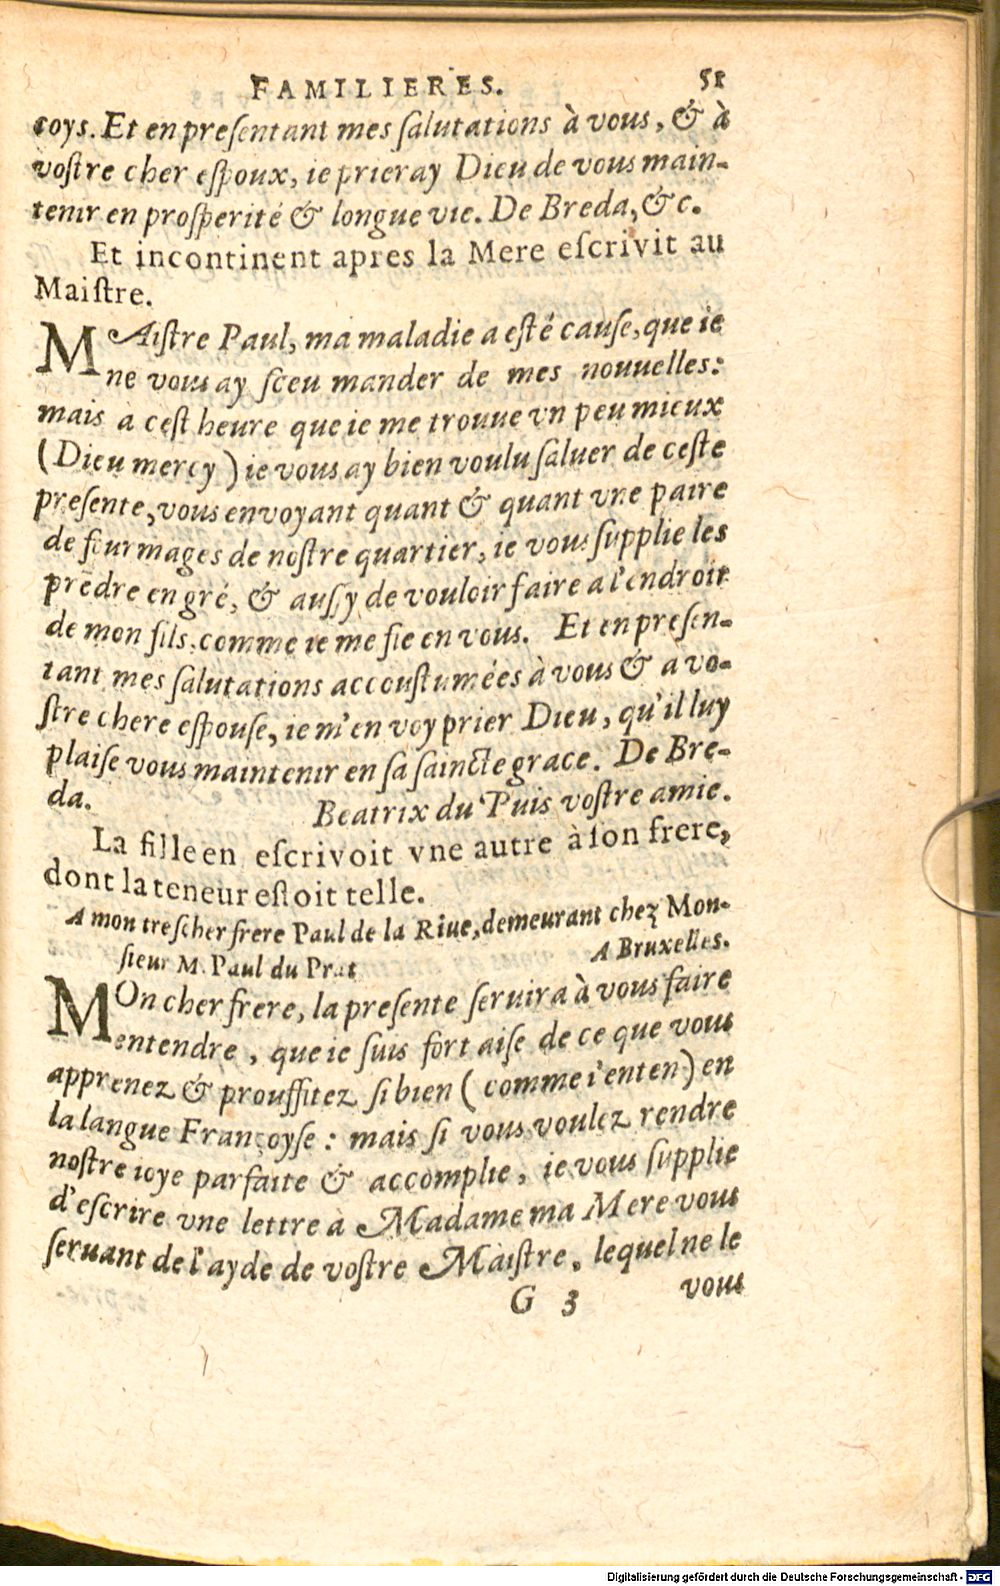 FAMILIERES. 51
coys. Et en preſentant mes ſalutations à vous, & à
voſtre cher eſpoux, ie prieray Dieu de vous main-
tenir en proſperité & longue vie. De Breda, &c.
Et incontinent apres la Mere eſcrivit au
Maiſtre.
MAiſtre Paul, ma maladie a eſté cauſe, que ie
ne vous ay ſceu mander de mes nouuelles:
mais à ceſt heure que ie me trouue vn peu mieux
(Dieu mercy) ie vous ay bien voulu ſaluer de ceſte
preſente, vous envoyant quant & quant vne paire
de fourmages de noſtre quartier, ie vous ſupplie les
prēdre en gré, & auſſy de vouloir faire a l'endroit
de mon fils, comme ie me fie en vous. Et en preſen-
tant mes ſalutations accouſtumées à vous & à vo-
ſtre chere eſpouſe, ie m'en voy prier Dieu, qu'il luy
plaiſe vous maintenir en ſa ſaincte grace. De Bre-
da. Beatrix du Puis voſtre amie.
La fille en eſcrivoit vne autre à ſon frere,
dont la teneur eſtoit telle.
A mon treſcher frere Paul de la Riue, demeurant chez Mon-
ſieur M. Paul du Prat A Bruxelles.
MOn cher frere, la preſente ſeruira à vous faire
entendre, que ie ſuis fort aiſe de ce que vous
apprenez & prouffitez ſi bien (comme i'enten) en
la langue Françoyſe: mais ſi vous voulez rendre
noſtre ioye parfaite & accomplie, ie vous ſupplie
d'eſcrire vne lettre à Madame ma Mere vous
ſeruant de l'ayde de voſtre Maiſtre, lequel ne le
G 3 vous
Digitalisierung gefördert durch die Deutsche Forschungsgemeinschaft - DFG